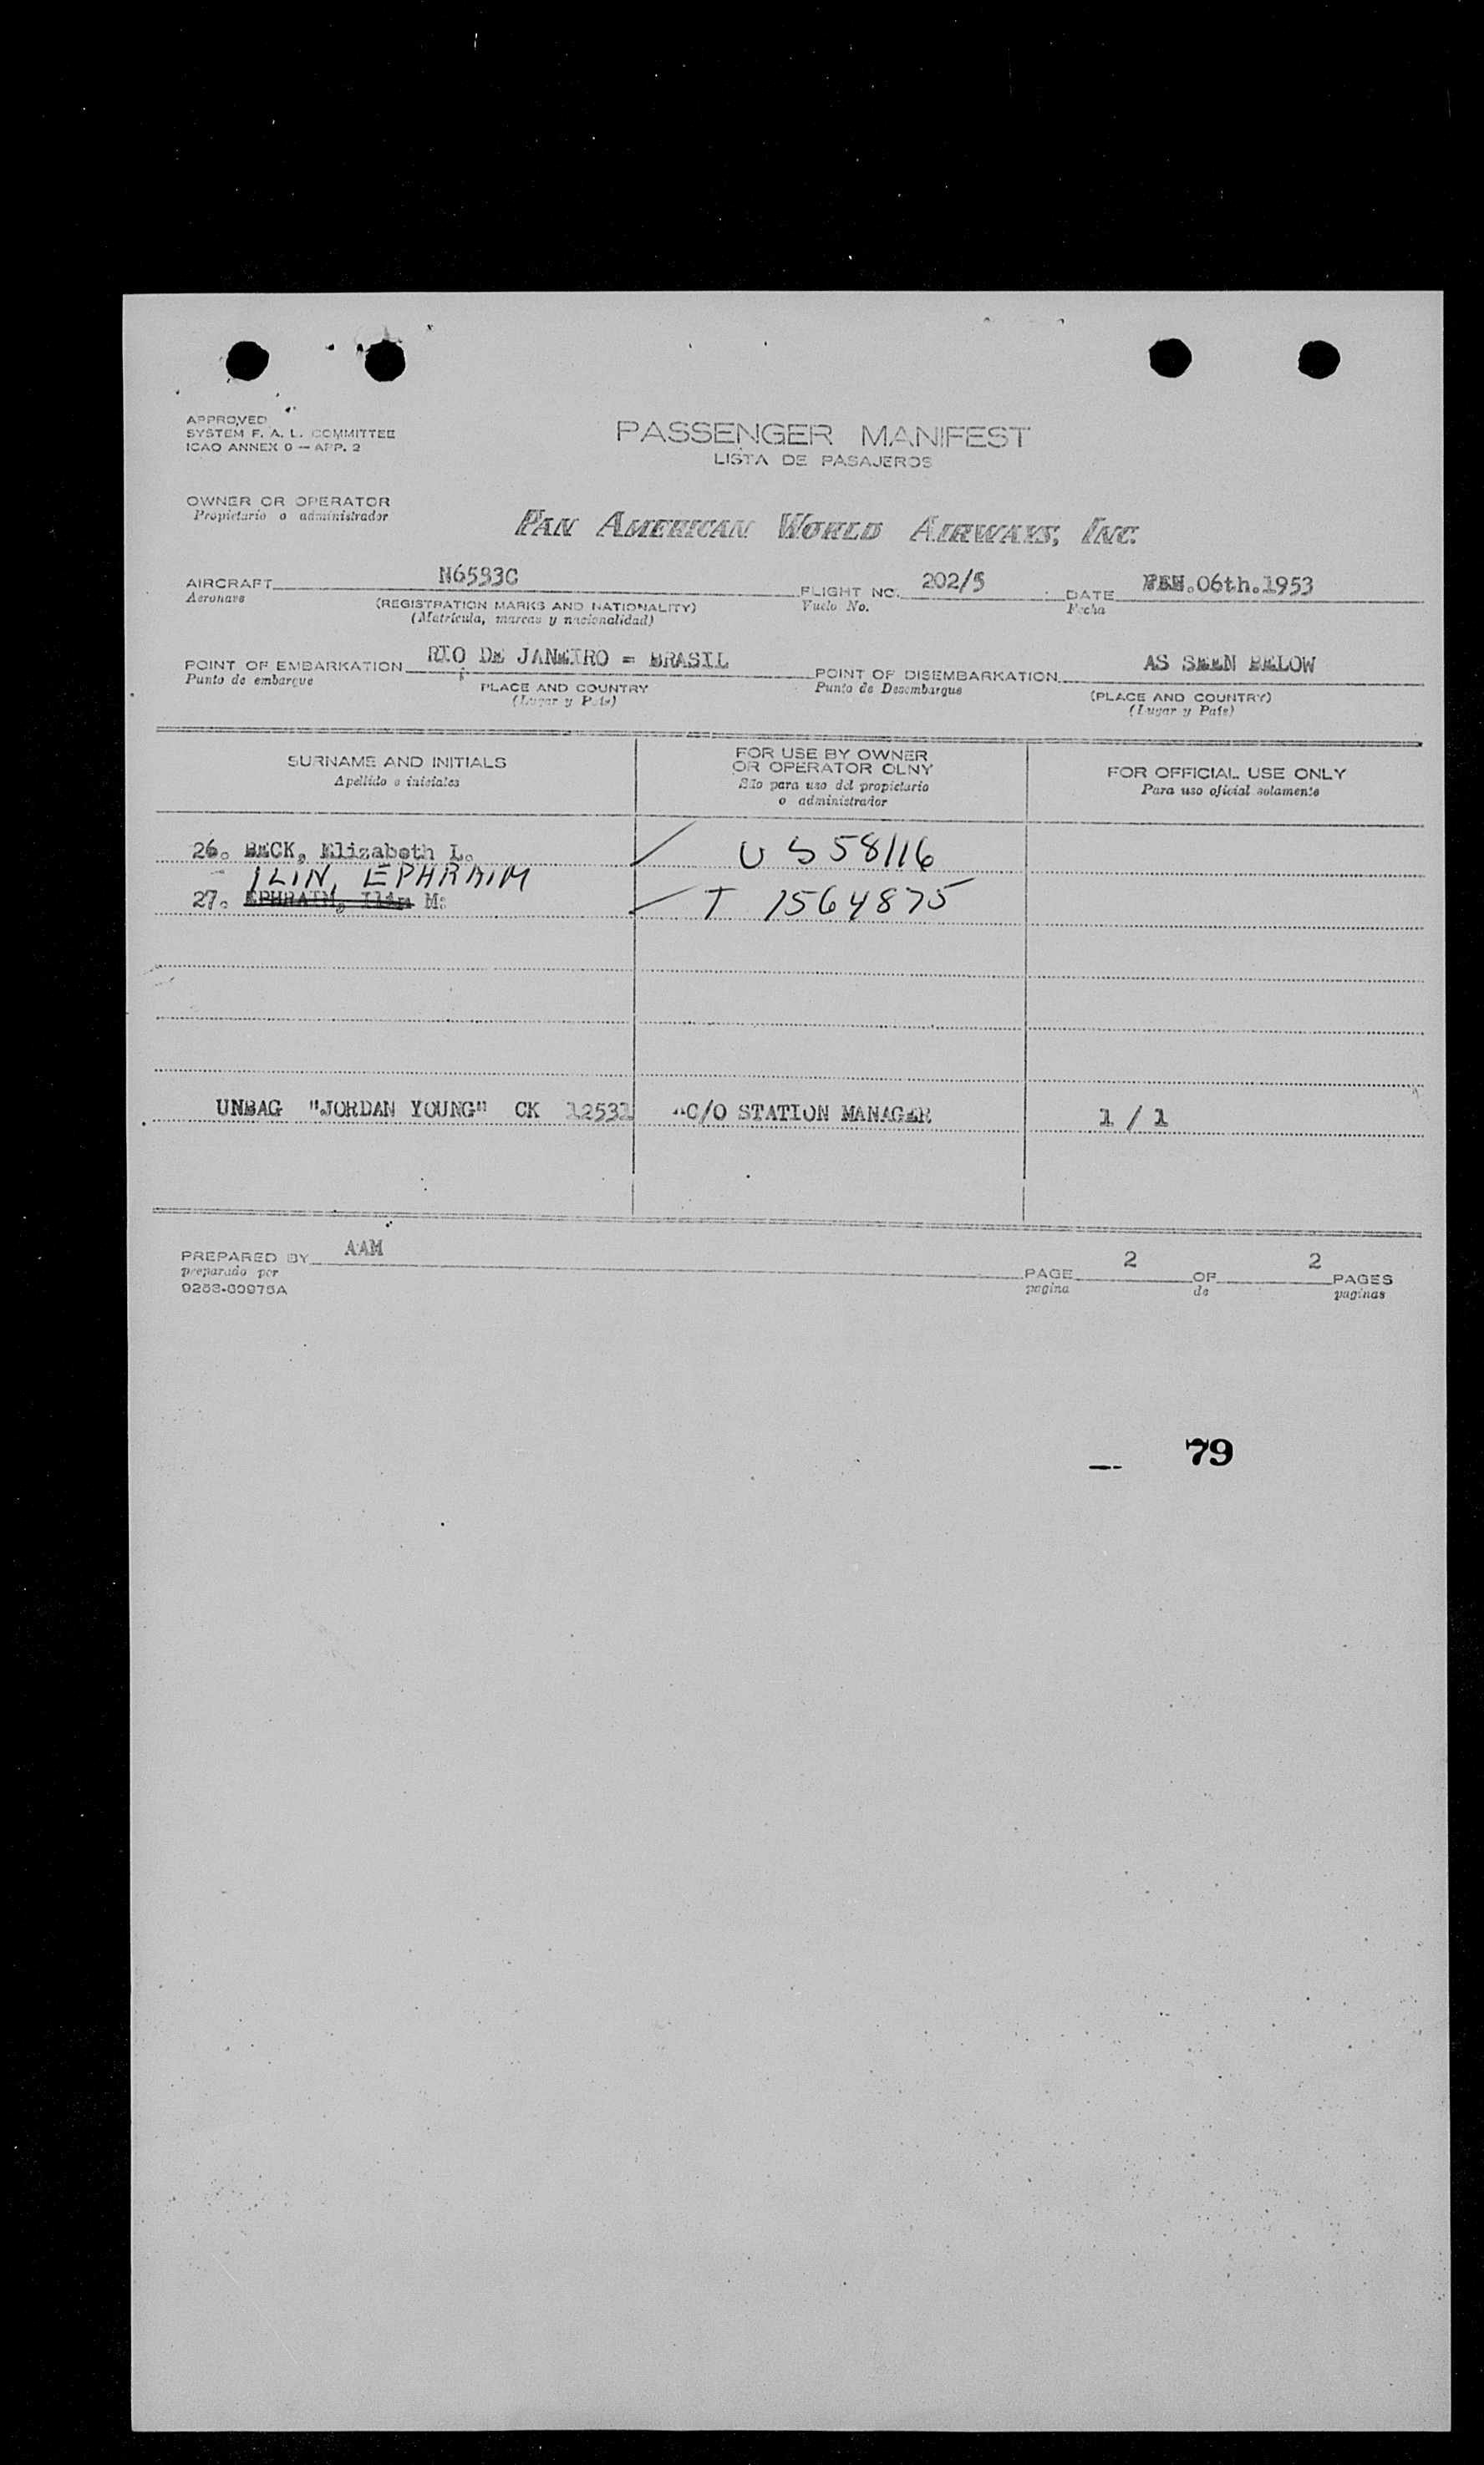 APPROVED
SYSTEM F. A. L. COMMITTEE
ICAO ANNEX 9 — APP. 2
PASSENGER MANIFEST
LISTA DE PASAJEROS
OWNER OR OPERATOR
Propietario o administrador
PAN AMERICAN WORLD AIRWAYS, INC.
AIRCRAFT N6593C FLIGHT NO. 202/5 DATE 06th.1953
Aeronave (REGISTRATION MARKS AND NATIONALITY) Vuelo No. Fecha
(Matrícula, marcas y nacionalidad)
POINT OF EMBARKATION RIO DE JANEIRO = BRASIL POINT OF DISEMBARKATION AS SEEN BELOW
Punto de embarque PLACE AND COUNTRY Punto de Desembarque (PLACE AND COUNTRY)
(Lugar y País) (Lugar y País)
SURNAME AND INITIALS
Apellido e iniciales
FOR USE BY OWNER
OR OPERATOR OLNY
Sólo para uso del propietario
o administrador
FOR OFFICIAL USE ONLY
Para uso oficial solamente
26. BECK, Elizabeth L. U S 58116
ILIN, EPHRAIM
27. EPHRAIM, Ilin M: T 1564875
UNBAG "JORDAN YOUNG" CK 12531 C/O STATION MANAGER 1 / 1
PREPARED BY AAM PAGE 2 OF 2 PAGES
preparado por pagina de paginas
9253-60975A
79